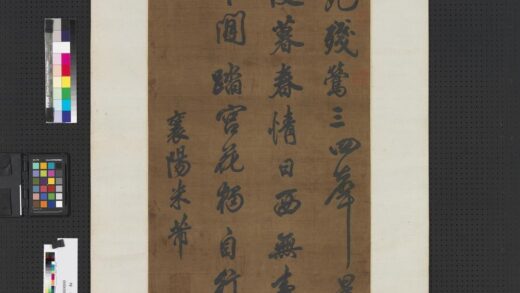 殘鶯三四聲景
暮春情日西無事
閒踏宮花獨自行
襄陽米芾